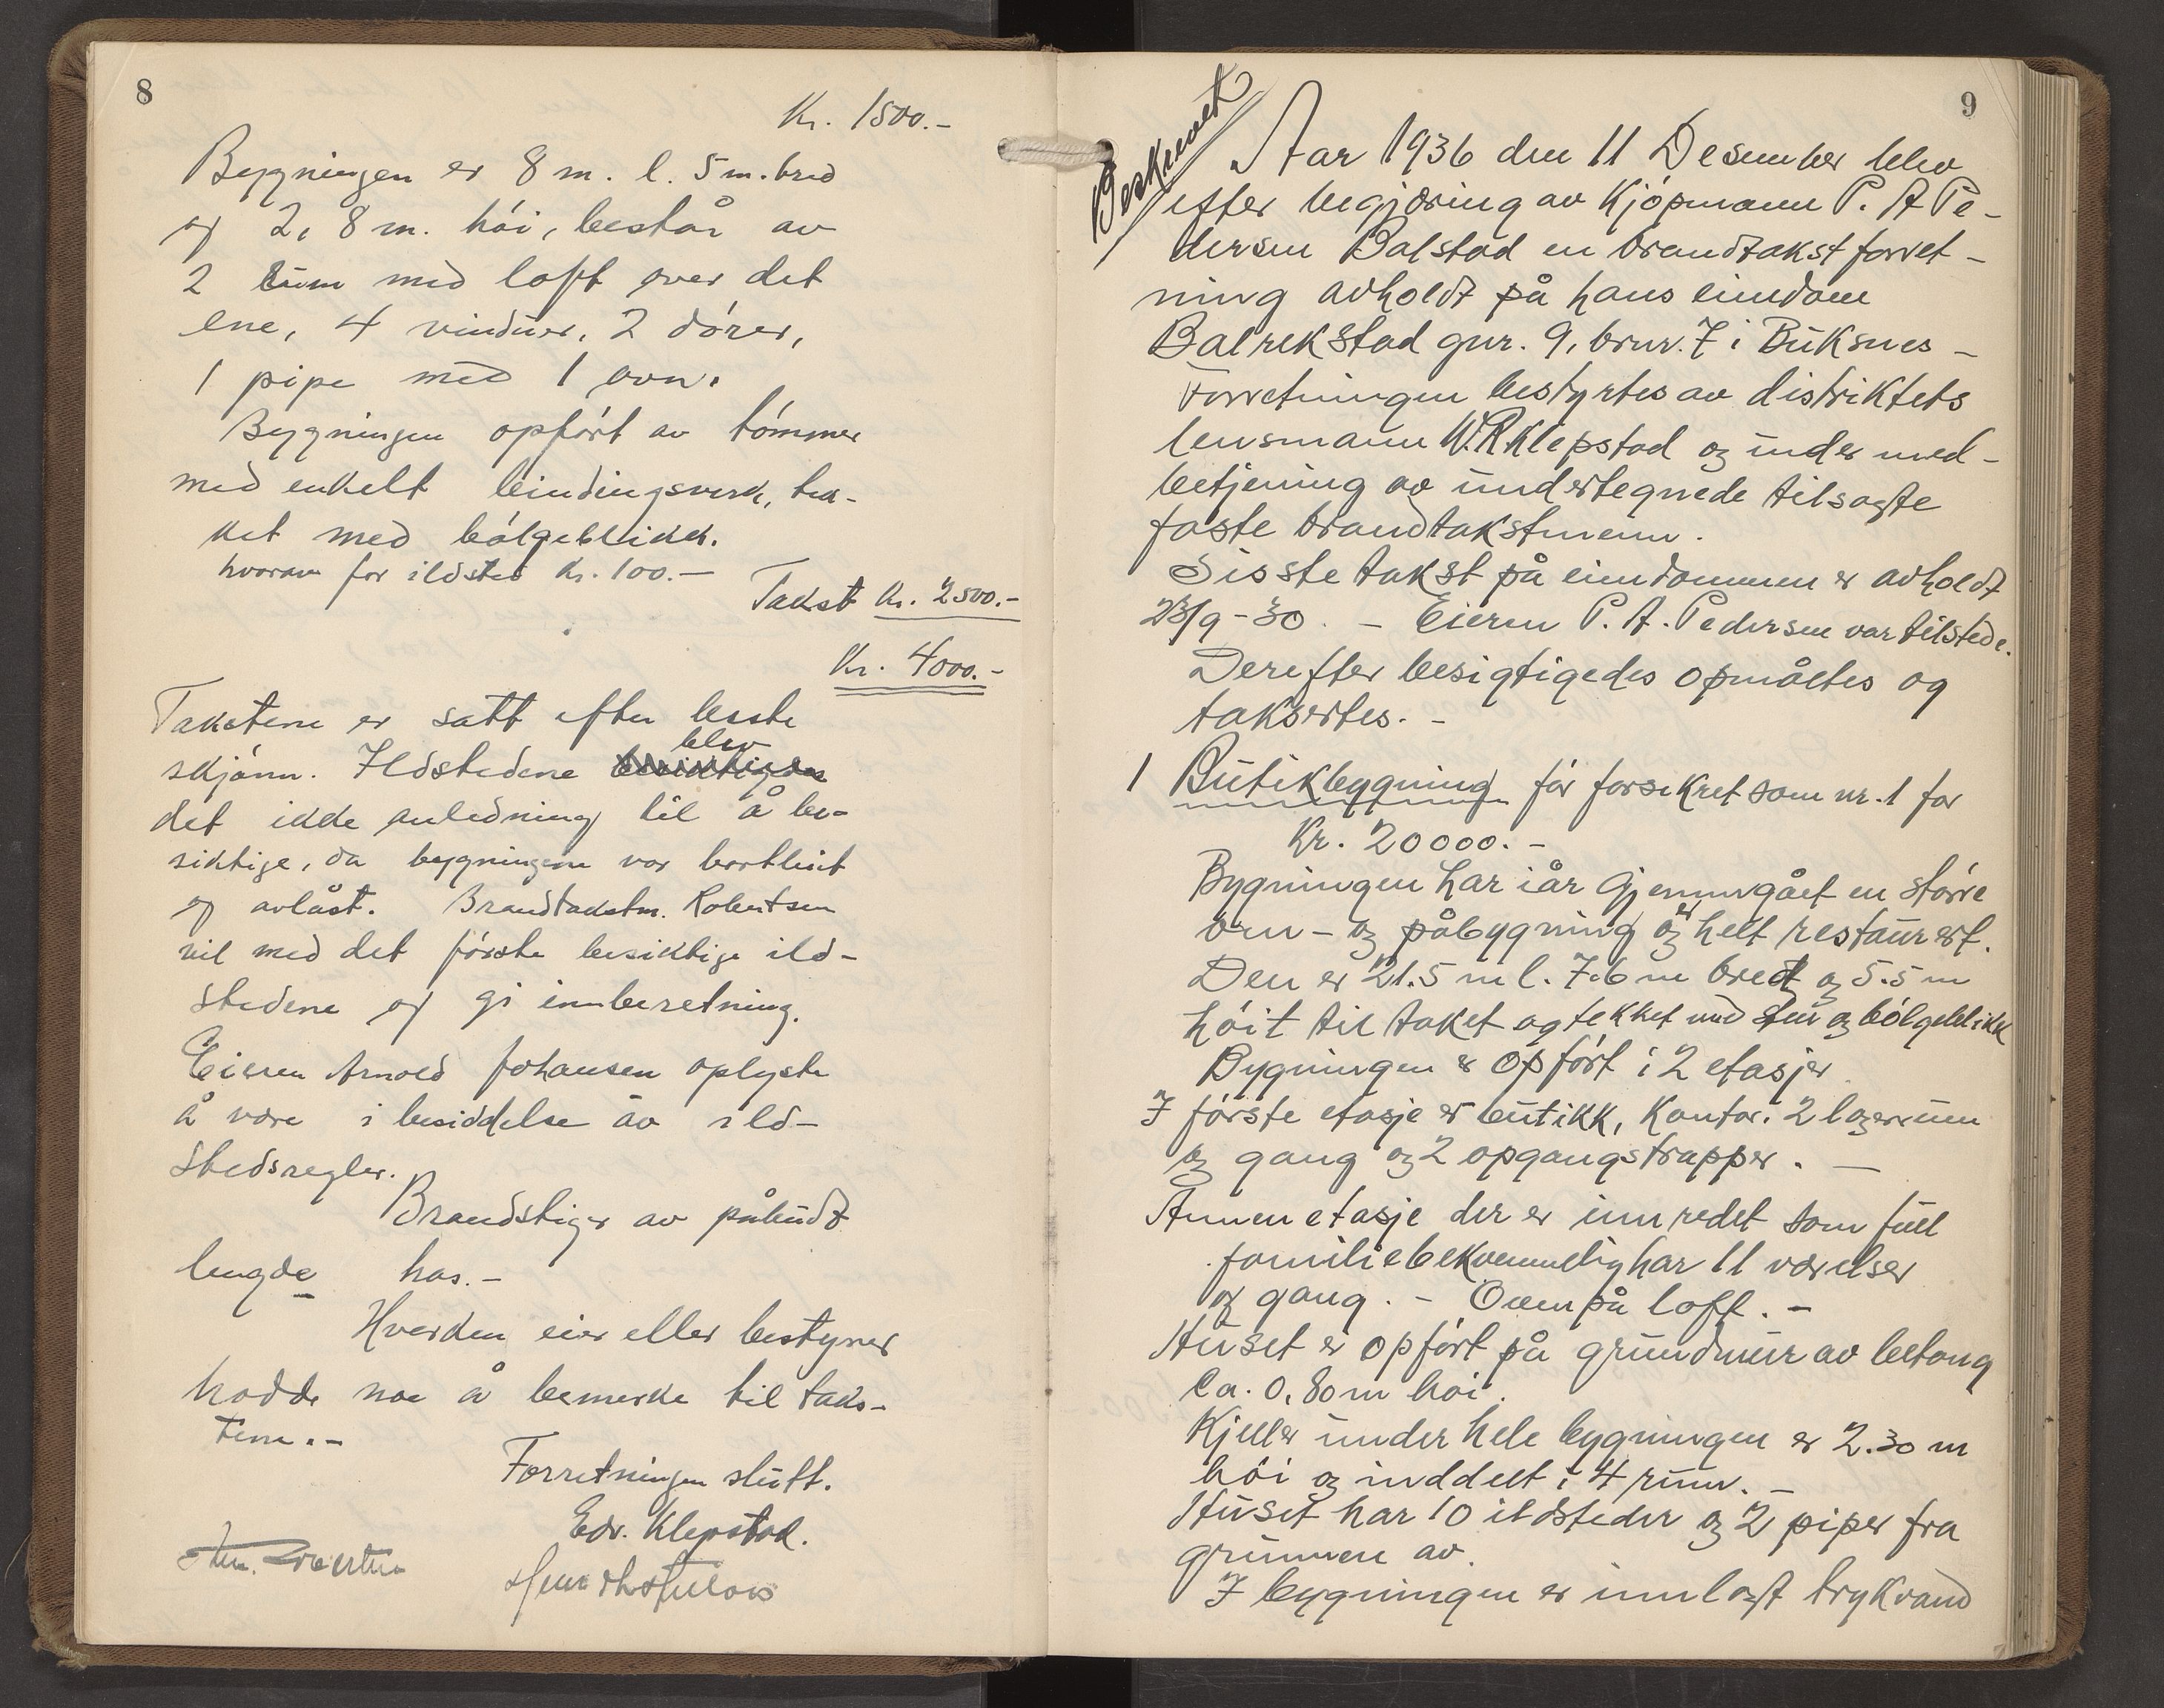 8
Kr. 1500.-
Bygningen er 8 m. l. 5 m. bred
og 2,8 m. hói, består av
2 rum med loft over det
ene, 4 vinduer, 2 dórer,
1 pipe med 1 ovn.
Bygningen opfórt av tómmer
med enkelt bindingsverk, tek-
ket med bólgeblikk.
hvorav for ildsted Kr. 100.-
Takst Kr. 2500.-
Kr. 4000.-
Takstene er satt efter beste
skjónn. Ildstedene blev
det ikke anledning til å be-
siktige, da bygningene var
og avlåst. Brandtakstm. Robertsen
vil med det fórste besiktige ild-
stedene og gi innberetning.
Eieren Arnold Johansen oplyste
å være i besiddelse av ild-
stedsregler.
Brandstiger av påbudt
lengde has.-
Hverken eier eller bestyrer
hadde noe å bemerke til taks-
tene.-
Forretningen slutt.
Edv. Klepstad.
9
Beskrevet
Aar 1936 den 11 Desember blev
efter begjæring av Kjópmann P. A Pe-
dersen Balstad en brandtakstforret-
ning avholdt på hans eiendom
Balrekstad gnr. 9, brnr. 7 i Buksnes -
Forretningen bestyrtes av distriktets
lensmann W.R Klepstad og under med-
betjening av undertegnede tilsagte
faste brandtakstmenn.
Sisste takst på eiendommen er avholdt
23/9-30. - Eieren P. A. Pedersen var tilstede.
Derefter besigtigedes opmåltes og
taksertes. -
1 Butikbygning fór forsikret som nr. 1 for
Kr. 20000.-
Bygningen har iår gjennemgået en stórre
om- og påbygning og er helt restaurert.
Den er 21.5 m l. 7.6 m bredt og 5.5 m
hóit til taket og tekket med sten og bólgeblikk
Bygningen er opfórt i 2 etasjer
I fórste etasje er butikk, Kontor. 2 lagerrum
og gang og 2 opgangstrapper. -
Annen etasje der er innredet som full
familiebekvemmelig har 11 værelser
og gang. - Ovenpå loft. -
Huset er opfórt på grundmur av betong
ca. 0,80 m hói.
Kjeller under hele bygningen er 2.30 m
hói og inddelt i 4 rum. -
Huset har 10 ildsteder og 2 piper fra
grunnen av.
I bygningen er innlagt trykvand